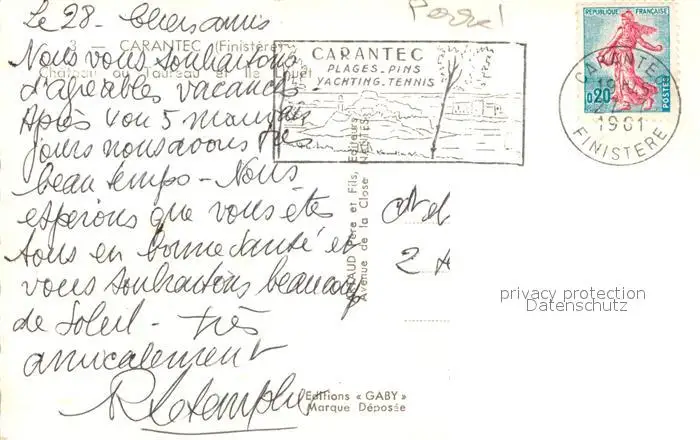 Le 28 - Chers amis
Nous vous souhaitons
d'agréables vacances -
Après 4 ou 5 mauvais
jours nous avons très
beau temps - Nous
espérons que vous êtes
tous en bonne santé et
vous souhaitons beaucoup
de Soleil - très
amicalement
3 — CARANTEC (Finistère)
Château du Taureau et Ile Louët
CARANTEC
PLAGES-PINS
YACHTING-TENNIS
REPUBLIQUE FRANÇAISE
0,20
POSTES
CARANTEC
1961
FINISTERE
Père et Fils, Editeurs
Avenue de la Close NANTES
privacy protection
Datenschutz
Editions « GABY »
Marque Déposée